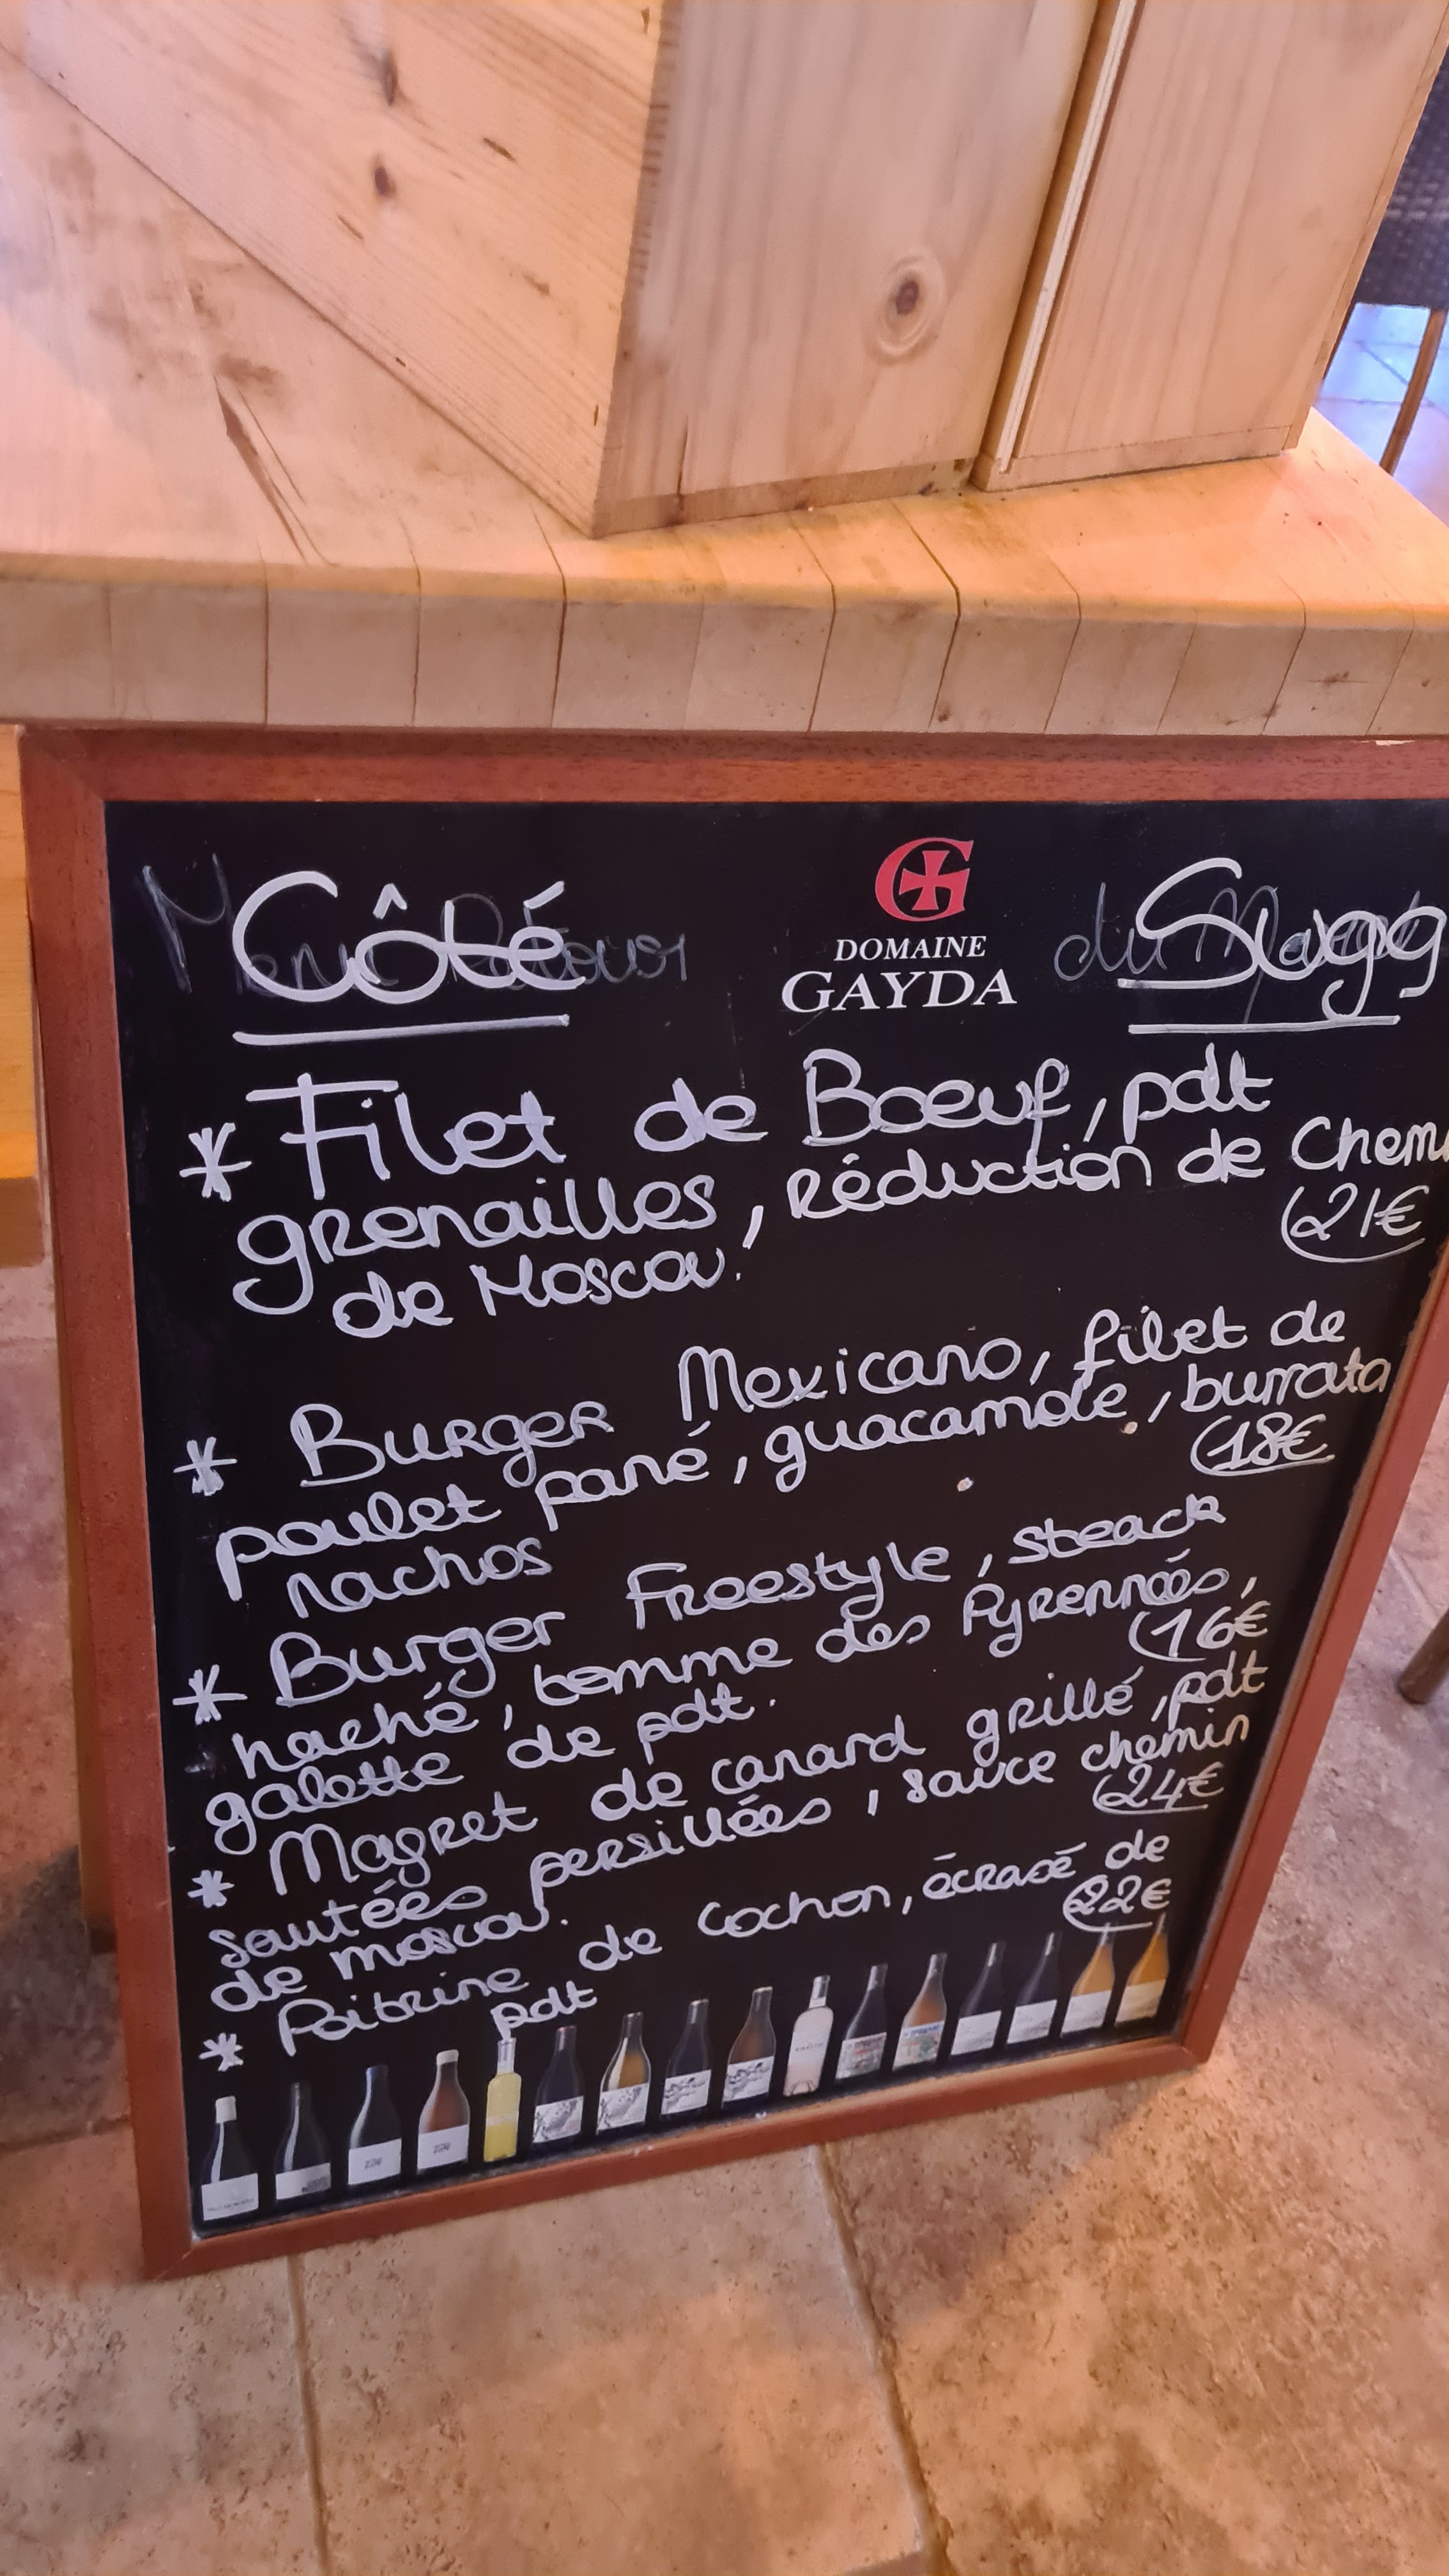 Côté
DOMAINE
GAYDA
Sugg
* Filet de Boeuf, pdt
grenailles, réduction de Chem
de Moscou.
21€
* Burger Mexicano, filet de
poulet pané, guacamole, burrata
nachos
18€
* Burger Freestyle, steack
haché, tomme des Pyrennées,
galette de pdt.
16€
* Magret de canard grillé, pdt
sautées persillées, sauce chemin
de moscou.
24€
* Poitrine de cochon, écrasé de
pdt
22€